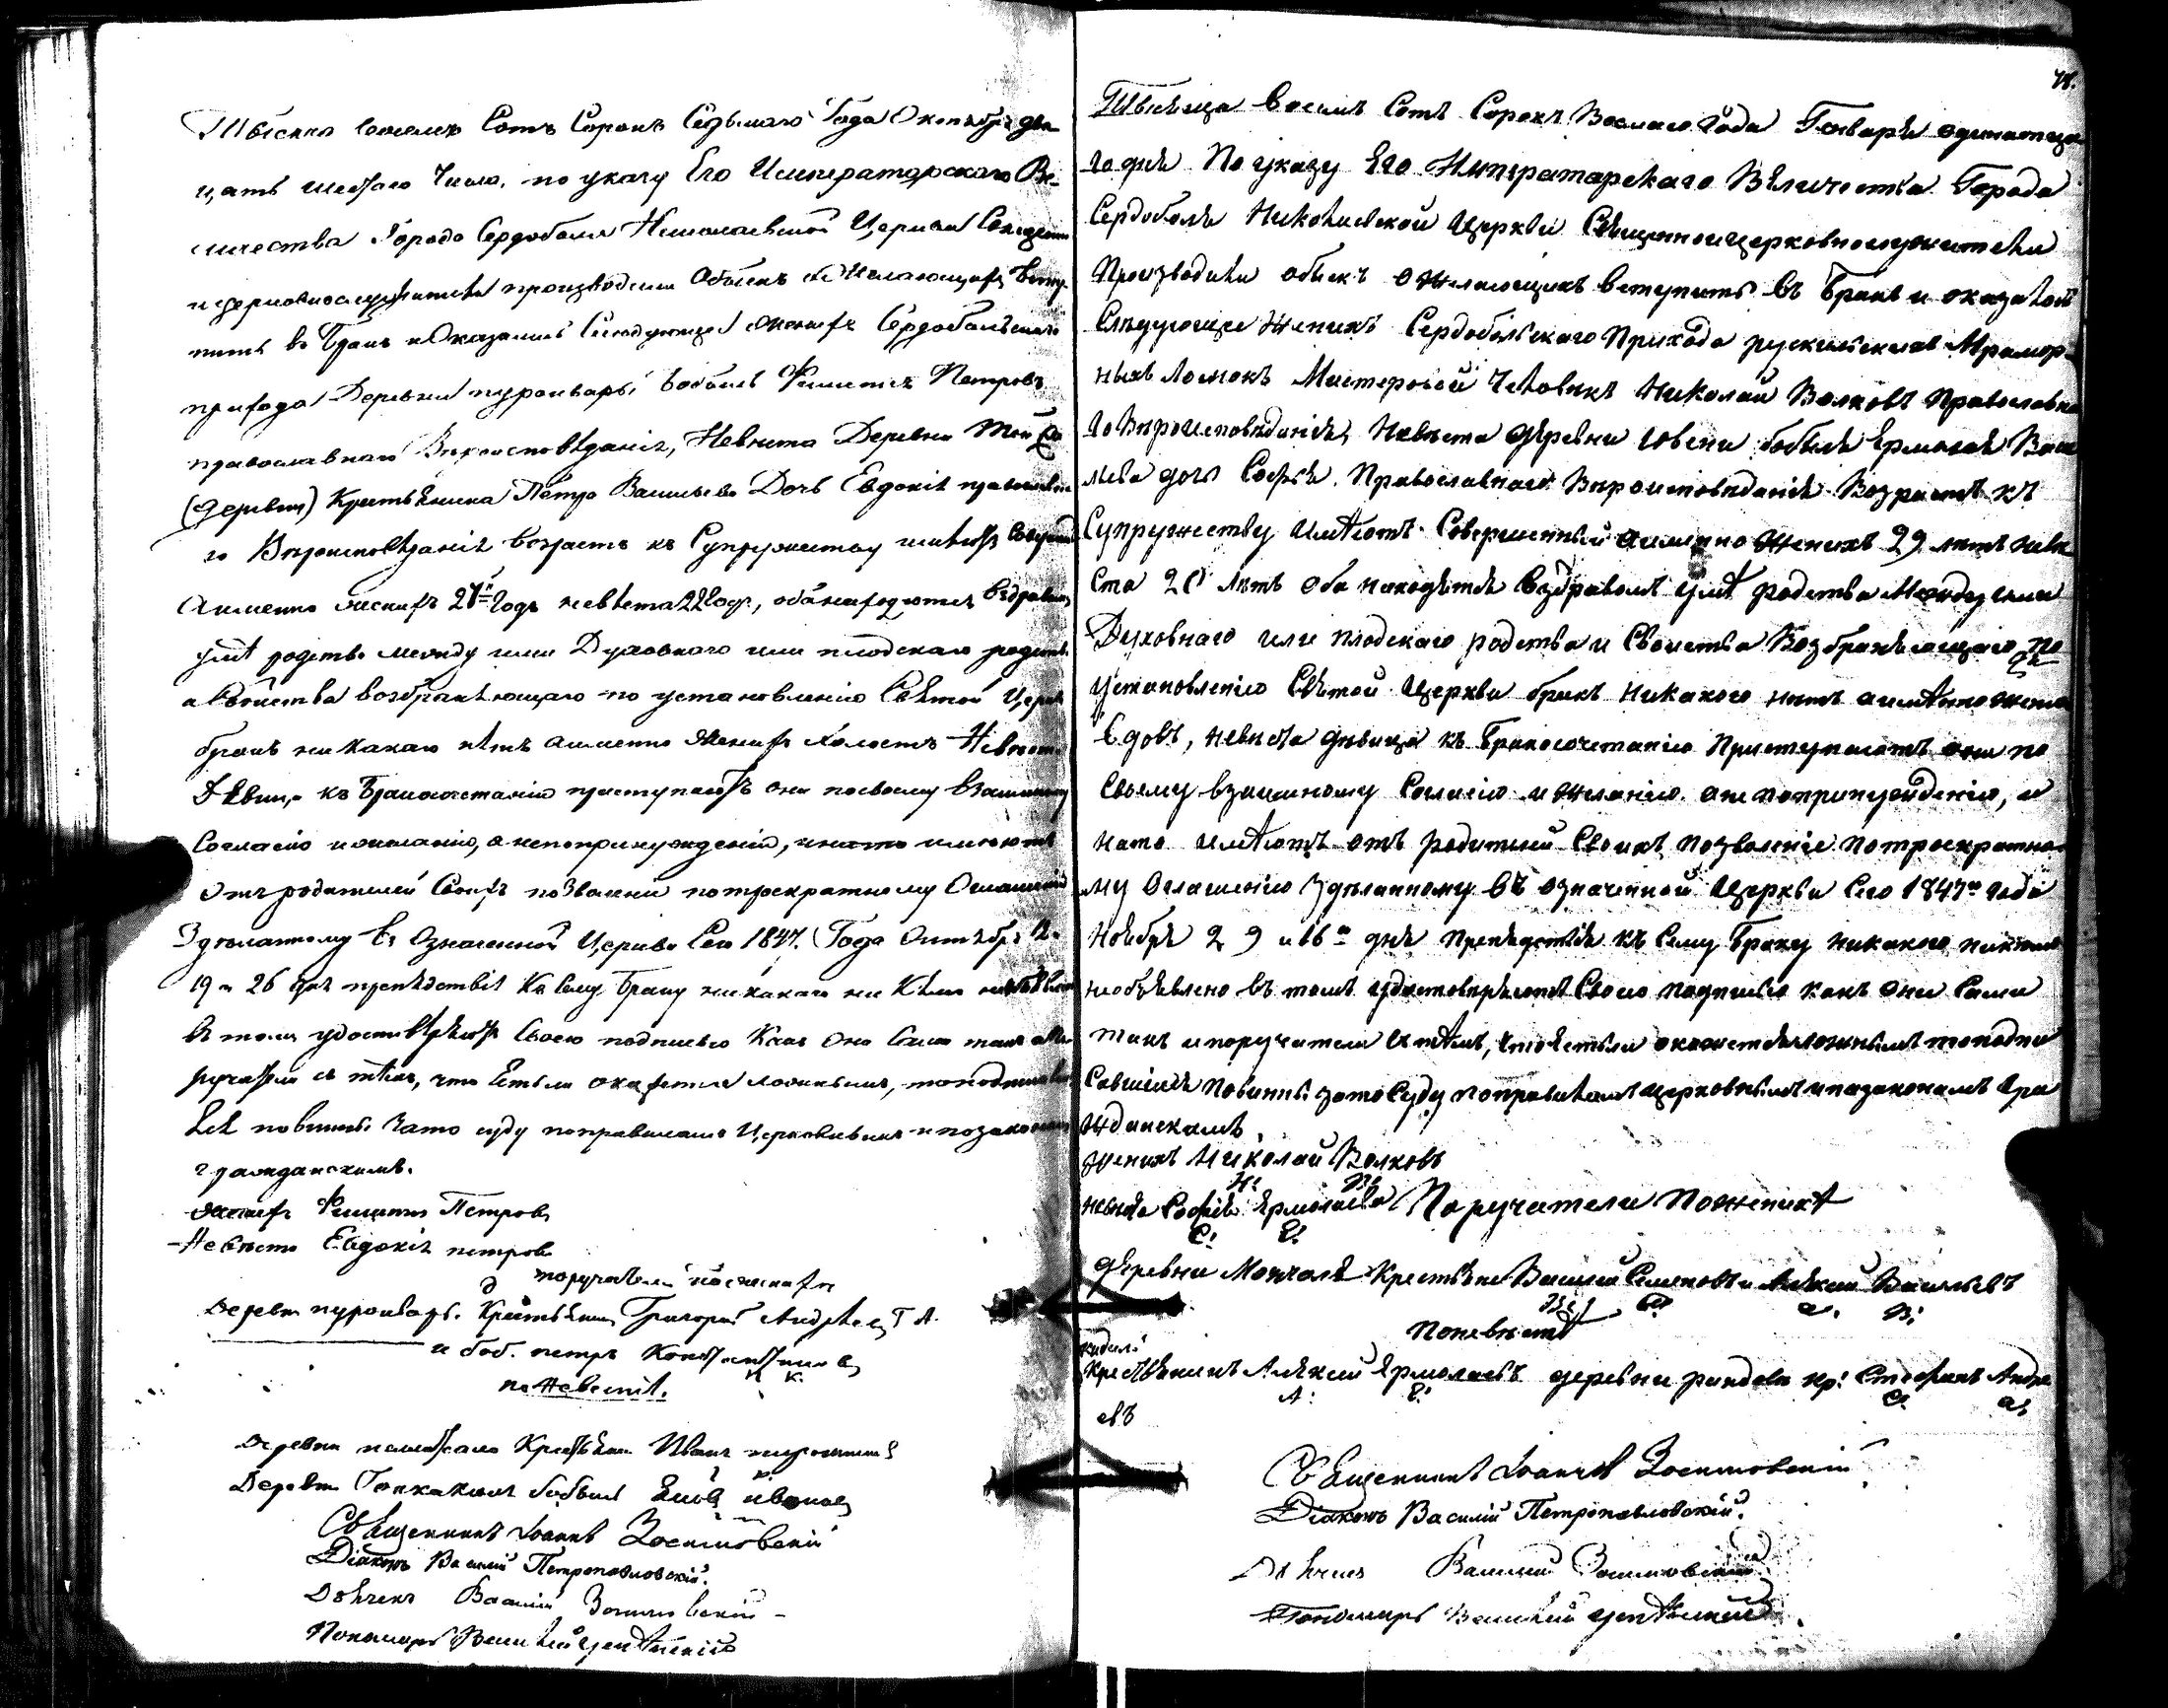 Тысяча восемь Сотъ Сорокъ Седьмаго Года Октября два-
цать шестаго Числа, по указу Его Императорскаго Ве-
личества Города Сердоболя Николаевской Церкви Священно
и церковнослужители производили Обыскъ о желающихъ всту-
пить въ Бракъ и Оказалось Слѣдующее женихъ Сердобольскаго
прихода Деревни пуроивары бобыль Филипъ Петровъ
православнаго Вѣроисповѣданія, Невѣста Деревни той же
(деревни) Крестьянина Петра Васильева Дочь Евдокія православна-
го Вѣроисповѣданія возрастъ къ Супружеству имѣютъ Совершен
Аименно женихъ 21й годъ невѣста 22 годъ, оба находятся въ здравомъ
умѣ родства между ими Духовнаго или плодскаго родства
и Свойства возбраняющаго по установленію Святой Церкви
бракъ никакаго нѣтъ аименно женихъ холостъ Невѣста
Дѣвица къ Бракосочетанію приступаютъ они по своему взаимному
Согласію и желанію, а не по принужденію, и на то имѣютъ
отъ родителей Своихъ позволеніе по троекратному Оглашенію
Здѣланному въ Означенной Церкви Сего 1847. Года Октября 12.
19 и 26 дня препядствія Къ сему Браку никакаго ни Кѣмъ необъявлено
въ томъ удостовѣряютъ Своею подписью Какъ Они Сами такъ и по-
ручатели съ тѣмъ, что Естьли окажется ложнымъ, то подписав
шія повинны за то суду по правиламъ Церковнымъ и по законамъ
гражданскимъ.
женихъ Филипъ Петровъ
Невѣста Евдокія петрова
поручатели по женихѣ
Деревни пуроивары. Крестьянинъ Григорій Андреевъ Г А.
и боб. петръ Константиновъ
п К
по Невестѣ.
Деревни Крестьянинъ Иванъ
Деревни бобыль ивановъ
Священникъ Іоаннъ Зосимовскій
Діаконъ Василій Петропавловскій.
Дьячекъ Василій Зосимовскій
Пономарь Василій
Тысяща Восемь Сотъ Сорокъ Восмаго Года Генваря одинатца
го дня По указу Его Императарскаго Величества Города
Сердоболя Николаевской Церкви Священноицерковнослужители
Производили обыскъ о желающихъ вступить въ Бракъ и оказалось
Слѣдующее Женихъ Сердобольскаго Прихода рускильскихъ Мрамор-
ныхъ ломокъ Мастеровой Человѣкъ Николай Волковъ Православна
го Вѣроисповѣданія, Невѣста деревни бобыля Ермолая Васи
льева дочь Софья. Православнаго Вѣроисповѣданія Возрастъ къ
Супружеству имѣютъ Совершенный аименно Женихъ 29 лѣтъ неве
ста 20 лѣтъ оба находятся въ здравомъ умѣ родства Между ими
Духовнаго или плодскаго родства и Свойства Возбраняющаго по
установленію Святой Церкви бракъ никакого нѣтъ аимѣнно жених
вдовъ, невѣста дѣвица къ Бракосочетанію Приступаютъ они по
Своему взаимному Согласію и желанію. а не по принужденію, и
на то имѣютъ отъ родителей Своихъ позволеніе по троекратно-
му Оглашенію Здѣланному въ означенной Церкви Сего 1847го года
Ноября 2 9 и 16го дня Препядствія къ Сему Браку никакого никѣмъ
необъявлено въ томъ удостовѣряютъ Своею подписью какъ они Сами
такъ и поручатели и тѣмъ, что естьли окажется ложнымъ то подпи
савшіяся повинны за то Суду по правиламъ церковнымъ и по законамъ гра
жданскимъ
Женихъ Николай Волковъ
Н: В:
невѣста Софія Ермолаева Поручатели по женихѣ
С: Е:
деревни Крестьяне Василій Семеновъ и Алексей Васильевъ
В: С: А: В:
по невѣстѣ
Крестьянинъ Алексей Ермолаевъ деревни кр: Стефанъ Андре
А: Е: С: А:
евъ
Священникъ Іоаннъ Зосимовскій
Діаконъ Василій Петропавловскій.
Дьячекъ Василій Зосимовскій
Пономарь Василій